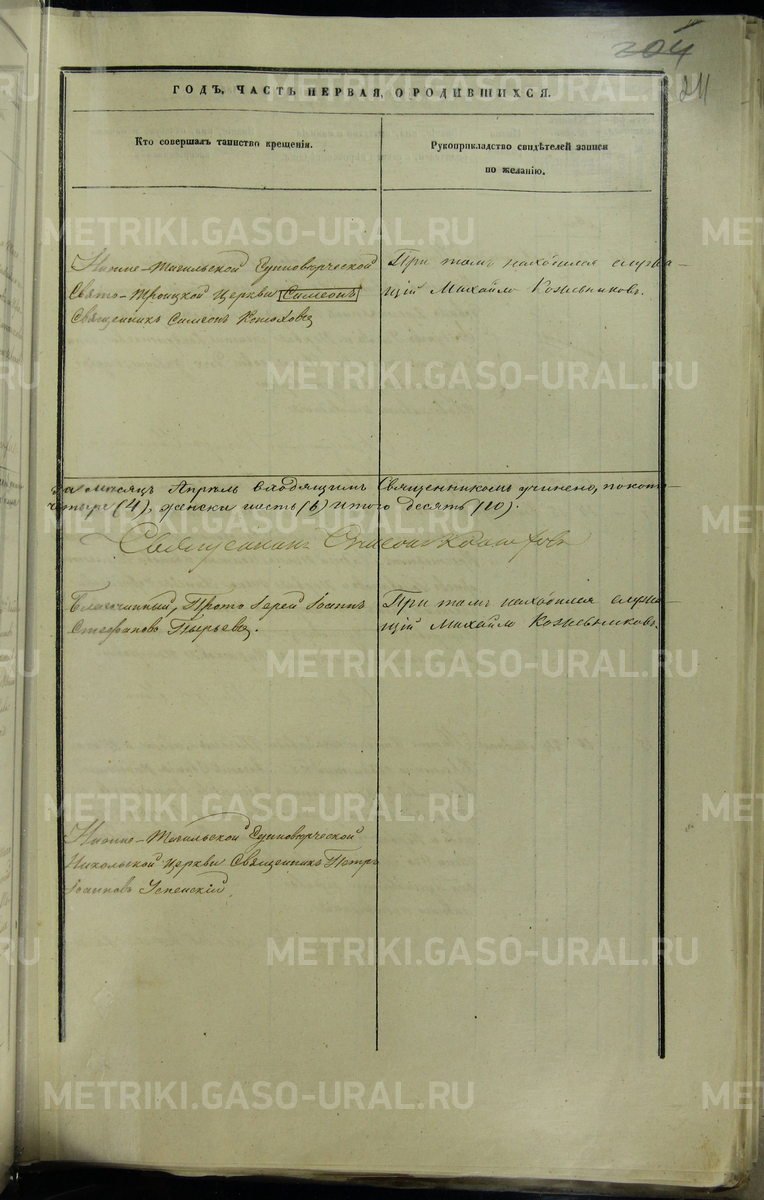 204
211
ГОДЪ, ЧАСТЬ ПЕРВАЯ, О РОДИВШИХСЯ.
Кто совершалъ таинство крещенія.
Рукоприкладство свидѣтелей записи
по желанію.
Нижне-Тагильской Единовѣрческой
Свято-Троицкой Церкви Симеонъ
Священникъ Симеонъ
При томъ находился служа-
щій Михайло Кожевниковъ.
За мѣсяцъ Апрѣль входящимъ Священникомъ учинено,
четыре (4), женска шесть (6) итого десять (10).
Священникъ Симеонъ
Благочинный, Прото Іерей Іоаннъ
Стефановъ Пырьевъ.
При томъ находился служа-
щій Михайло Кожевниковъ.
Нижне-Тагильской Единовѣрческой
Никольской Церкви Священникъ Петръ
Іоанновъ Успенскій.
METRIKI.GASO-URAL.RU